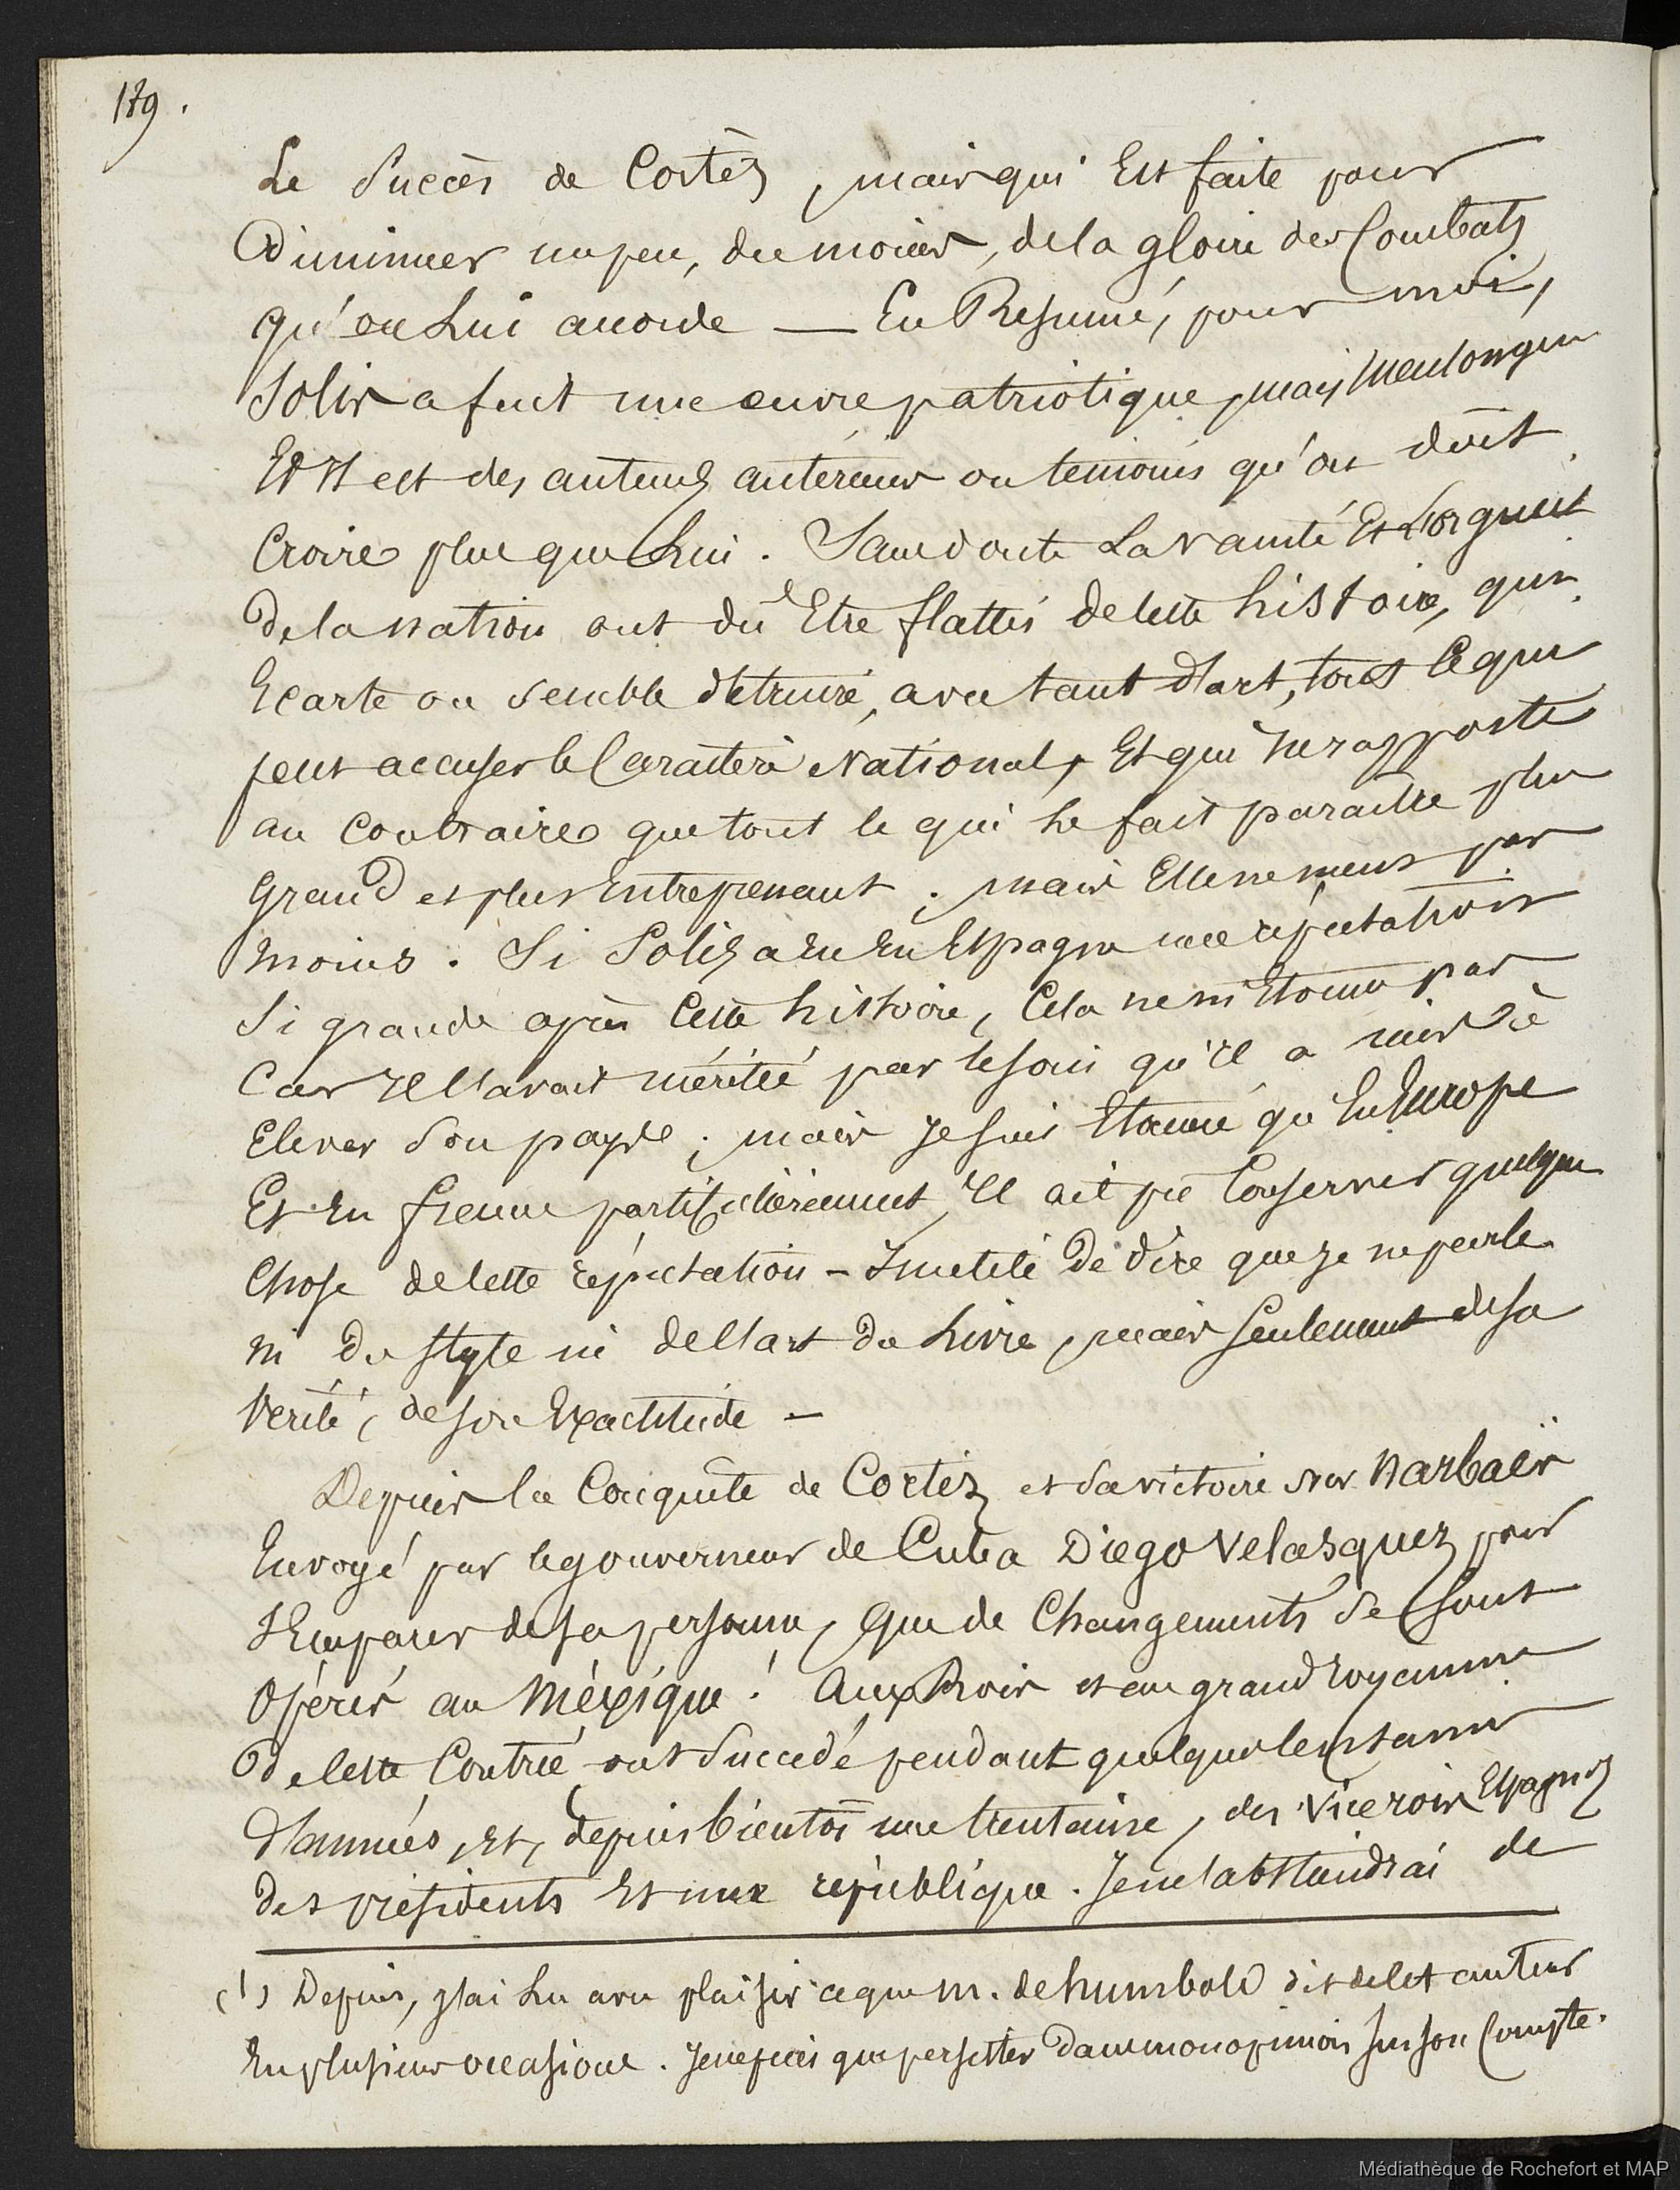 189.
Le Succès de Cortéz, mais qui Est faite pour
Diminuer un peu, du moins, de la gloire des Combats
qu'on Lui accorde — En Resumé, pour moi,
Solis a fait une œuvre patriotique, mais Mensongere
Et Il est des auteurs anterieurs ou temoins qu'on doit
Croire plus que Lui. Sans doute La Vanité Et L'orgueil
De la nation ont dû Etre flattés de cette histoire, qui
Ecarte ou Semble détruire, avec tant d'art, tout Ce qui
peut accuser le Caractère National, Et qui ne rapporte
au Contraire que tout ce qui le fait paraitre plus
Grand et plus Entreprenant. mais Elle ne ment pas
Moins. Si Soliz a Eu En Espagne une réputation
Si grande après Cette histoire, Cela ne m'Etonne pas
Car Il l'avait méritée par le soin qu'Il a mis à
Elever Son pays ; mais Je suis Etonné qu'En Europe
Et En france particulièrement, Il ait pu Conserver quelque
Chose de cette réputation — Inutile De dire que Je ne parle
ni Du Style ni de l'art Du Livre, mais Seulement de sa
Verité, de son Exactitude —
Depuis la Conquête de Cortéz et Sa victoire sur Narbaës
Envoyé par le gouverneur de Cuba Diego Velasquez pour
S'Emparer de sa personne, Que de Changements Se Sont
Opérés au Méxique ! Aux Rois et au grand Royaume
De cette Contrée ont Succedé pendant quelques Centaines
D'années, Et, depuis bientôt une trentaine, des Vicerois Espagnols
Des présidents Et une république. Je m'abstiendrai de
(1) Depuis, J'ai Lu avec plaisir ce que M. de humbold dit de Cet auteur
En plusieurs occasions. Je ne puis que persister Dans mon opinion Sur son Compte.
Médiathèque de Rochefort et MAP